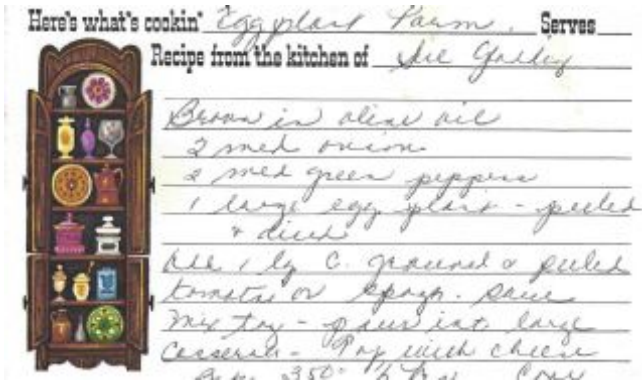 Here's what's cookin' Eggplant Parm. Serves
Recipe from the kitchen of
Brown in olive oil
2 med onion
2 med green peppers
1 large egg plant - peeled
& diced
Add 1 lg C. ground & peeled
tomatoe or spagh. sauce
Mix tog - pour into large
Casserole - Top with cheese
350°